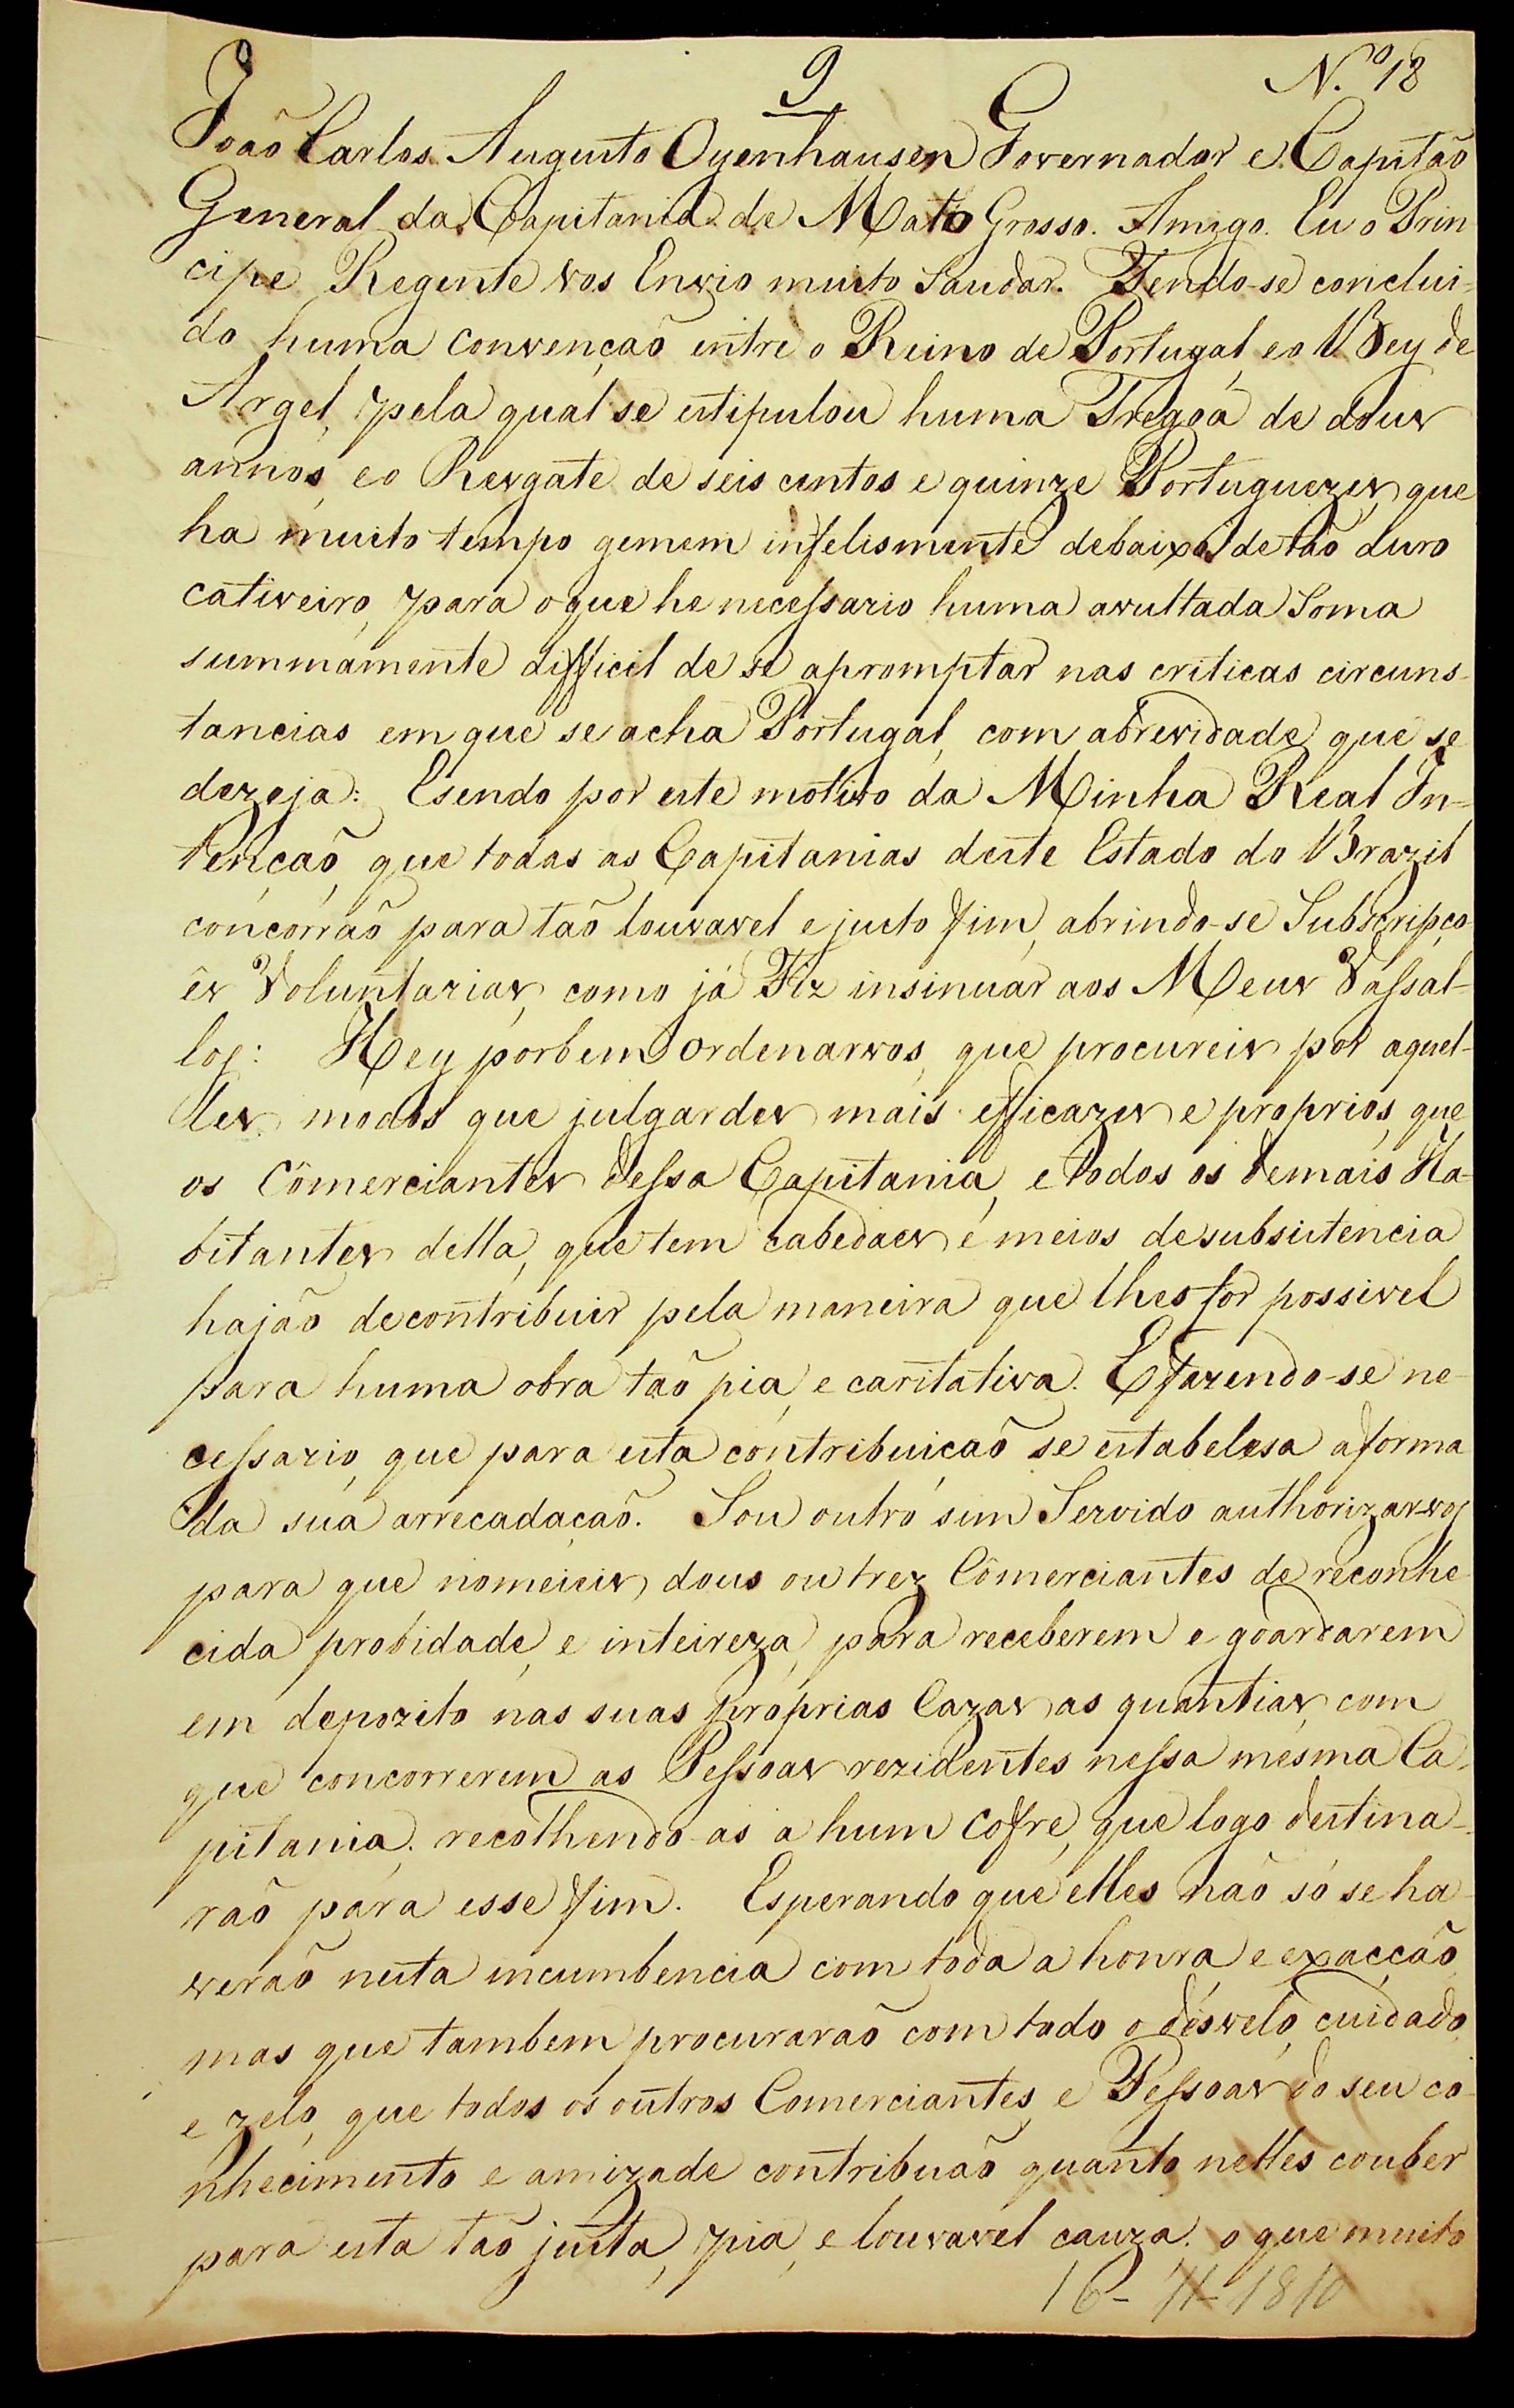 9
N.º 18
João Carlos Augusto Oyenhausen Governador e Capitão
General da Capitania de Mato Grosso. Amigo. Eu o Prin
cipe Regente vos Envio muito Saudar. Tendo-se conclui-
do huma convenção entre o Reino de Portugal, e o Bey de
Argel, pela qual se estipulou huma Tregoá de dous
annos, e o Resgate de seis centos e quinze Portuguezes, que
ha muito tempo gemem infelismente debaixo de tão duro
cativeiro, para o que he necessario huma avultada Soma
summamente difficil de se apromptar nas criticas circuns-
tancias em que se acha Portugal, com abrevidade que se
dezeja: E sendo por este motivo da Minha Real In-
tenção, que todas as Capitanias deste Estado do Brazil
concorrão para tão louvavel e justo fim, abrindo-se Subscripço-
ẽs Voluntarias, como já Fiz insinuar aos Meus Vassal-
los: Hey por bem Ordenarvos, que procureis por aquel-
les modos que julgardes mais efficazes e proprios, que
os Cõmerciantes dessa Capitania, e todos os demais Ha-
bitantes della, que tem cabedaes e meios de subsistencia
hajão de contribuir pela maneira que lhes for possivel
para huma obra tão pia, e caritativa. E fazendo-se ne-
cessario, que para esta contribuição se estabelesa a forma
da sua arrecadação. Sou outro sim Servido authorizar-vos
para que nomeieis dous ou trez Cõmerciantes de reconhe
cida probidade, e inteireza, para receberem e goardarem
em depozito nas suas proprias Cazas as quantias, com
que concorrerem as Pessoas rezidentes nessa mesma Ca-
pitania; recolhendo-as a hum Cofre, que logo destina-
rão para esse fim. Esperando que elles não só se ha-
verão nesta incumbencia com toda a honra e exacção,
mas que tambem procurarão com todo o disvelo, cuidado,
e zelo, que todos os outros Comerciantes, e Pessoas do seu co-
nhecimento e amizade contribuão quanto nelles couber
para esta tão justa, pia, e louvavel cauza. o que muito
16-11-1810